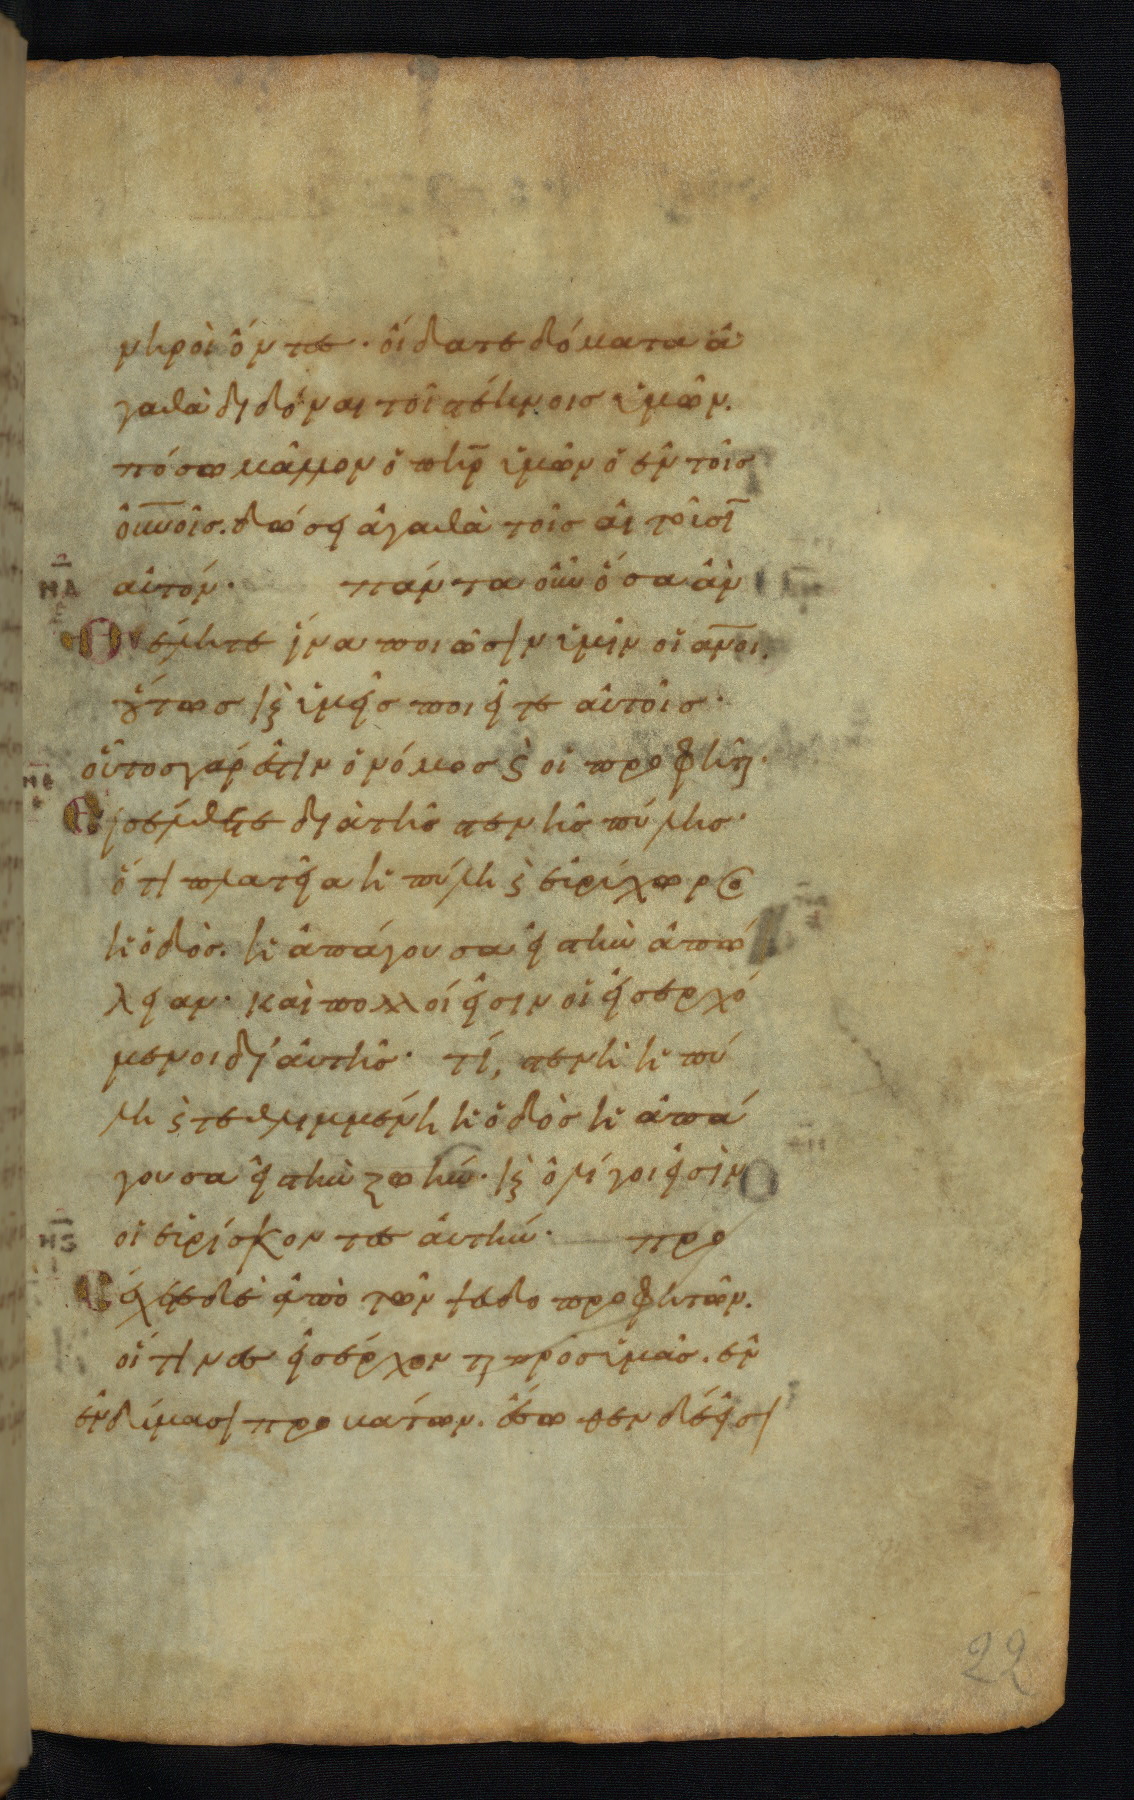 νηροὶ ὄντες· οἴδατε δόματα ἀ
γαθὰ διδόναι τοῖ τέκνοις ὑμῶν.
πόσω μᾶλλον ὁ πη̅ρ ὑμῶν ὁ ἐν τοῖς
οὐ̅νοῖς. δώσει ἀγαθὰ τοῖς αἰτοῦσῑ
ΜΔ αὐτόν· πάντα οὖν ὅσα ἂν
Θέλητε ἵνα ποιῶσιν ὑμῖν οἱ αν̅οι.
οὕτως κ̀ ὑμεῖς ποιεῖτε αὐτοῖς·
ΜΕ οὗτος γάρ ἐστιν ὁ νόμος κ̀ οἱ προφῆτ·
Εἰσέλθετε διὰ τῆς στενῆς πύλης·
ὅτι πλατεῖα ἡ πύλη κ̀ εὐρύχωρο
ἡ ὁδὸς. ἡ ἀπάγουσα εἰ στὴν ἀπώ
λειαν· καὶ πολλοί εἰσιν οἱ εἰσερχό
μενοι δι' αὐτῆς· τί, στενὴ ἡ πύ
λη κ̀ τεθλιμμένη ἡ ὁδὸς ἡ ἀπά
γουσα εἰ στὴν ζωήν· κ̀ ὀλίγοι εἰσὶν
ΜϚ οἱ εὑρίσκοντες αὐτήν· προ
σέχετε δὲ ἀπὸ τῶν ψεδο προφητῶν.
οἵτινες εἰσέρχοντ πρὸς ὑμᾶς. ἐν
ἐνδύμασι προ κάτων. ἔσωθεν δέ εἰσι
22